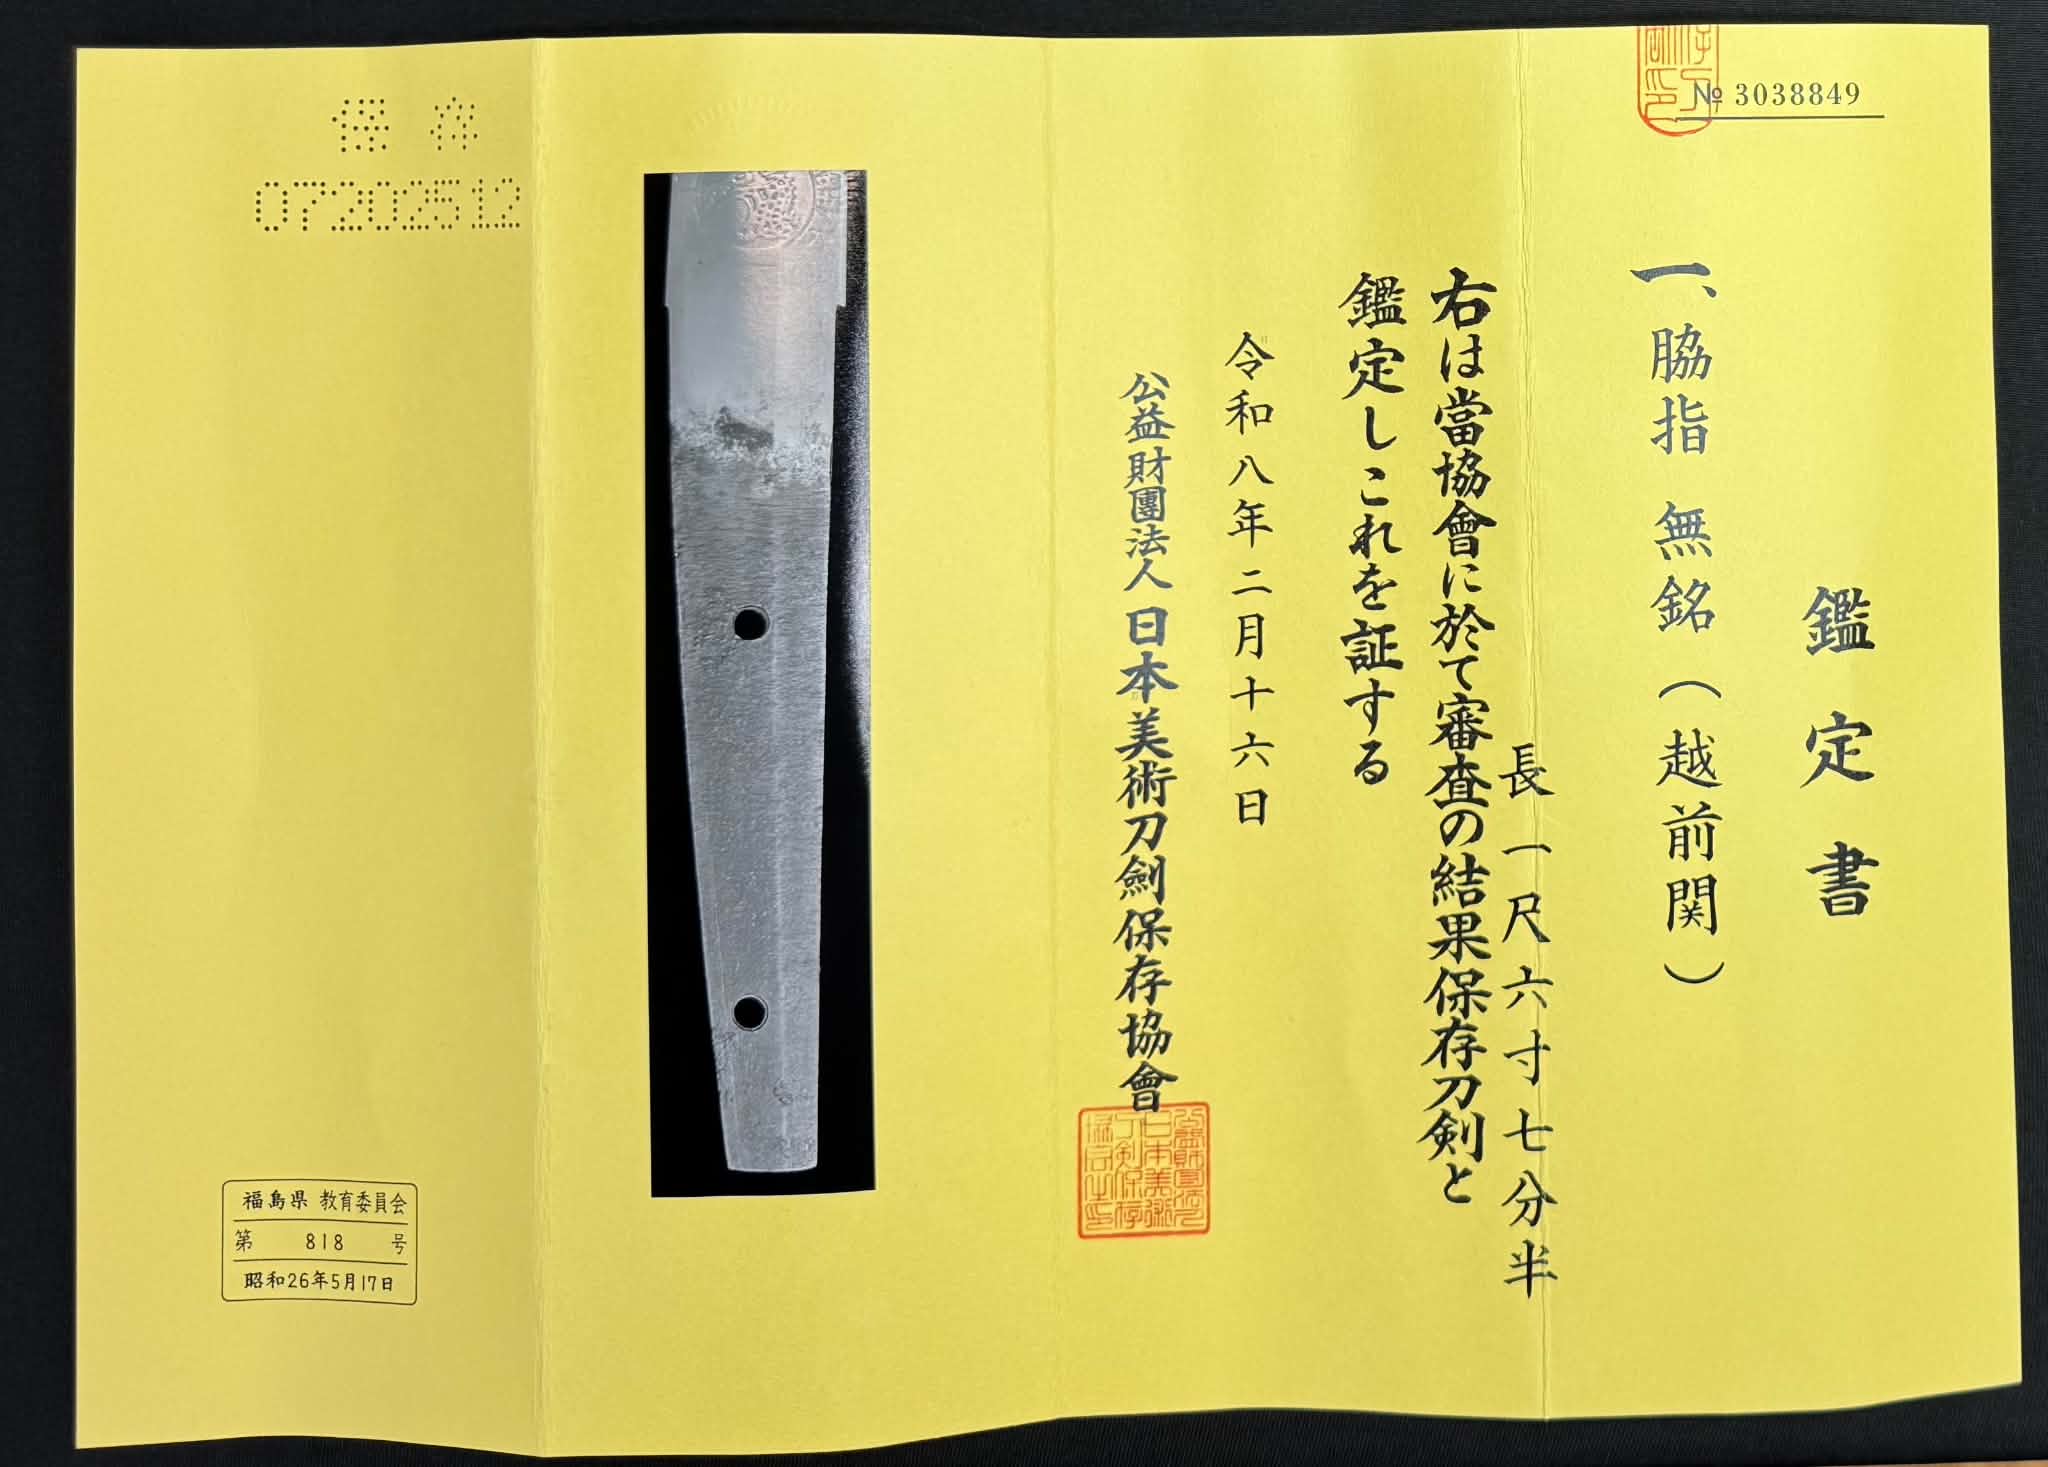 № 3038849
鑑定書
一、脇指 無銘（越前関）
長一尺六寸七分半
右は當協會に於て審査の結果保存刀剣と
鑑定しこれを証する
令和八年二月十六日
公益財團法人 日本美術刀劍保存協會
保存
07202512
福島県 教育委員会
第 818 号
昭和26年5月17日